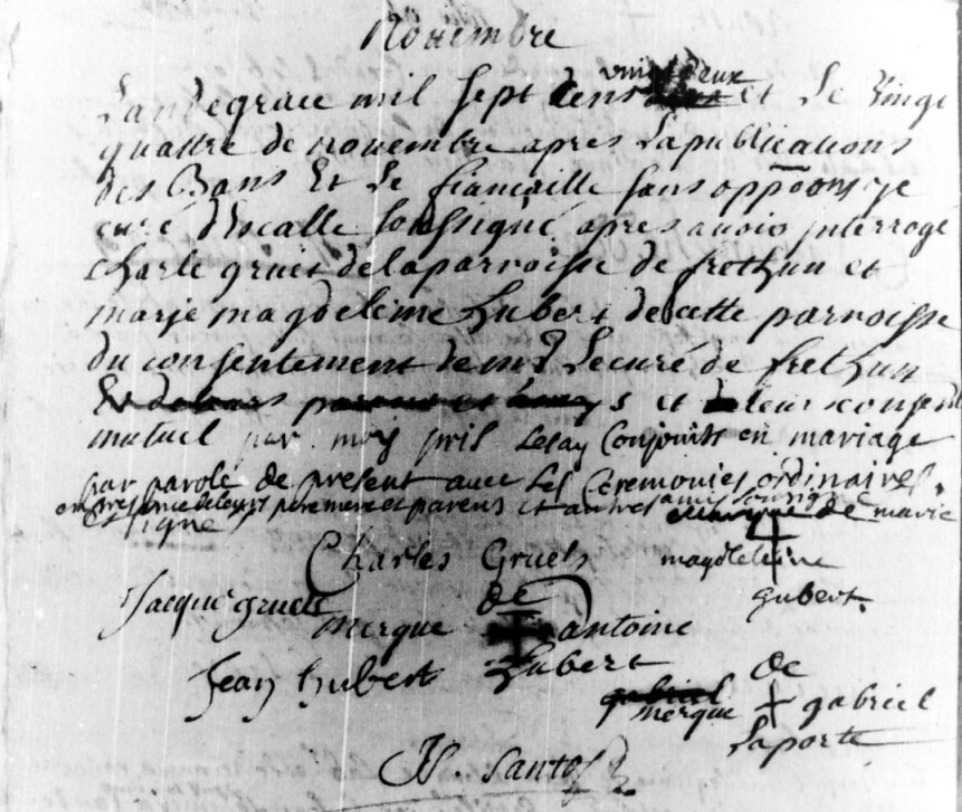 Novembre
Lan de grace mil sept cens vingt deux et le vingt
quattre de novembre apres la publications
des Bans Et le fiancaille sans oppoons je
curé d'escalle soussigné apres avoir jnterrogé
charle gruet de la parroisse de frethun et
marje magdeleine hubert de cette parroisse
du consentement de mr le curé de frethun
et leur consent
mutuel par moy pris les ay conjoints en mariage
par parole de present avec les ceremonies ordinaires.
en presence de leurs pere mere et parens et autres amis
et signé
de marie
magdeleine
hubert.
Charles Gruets
Jacque gruets
merque de antoine
hubert
Jean hubert
gabriel
merque de gabriel
laporte